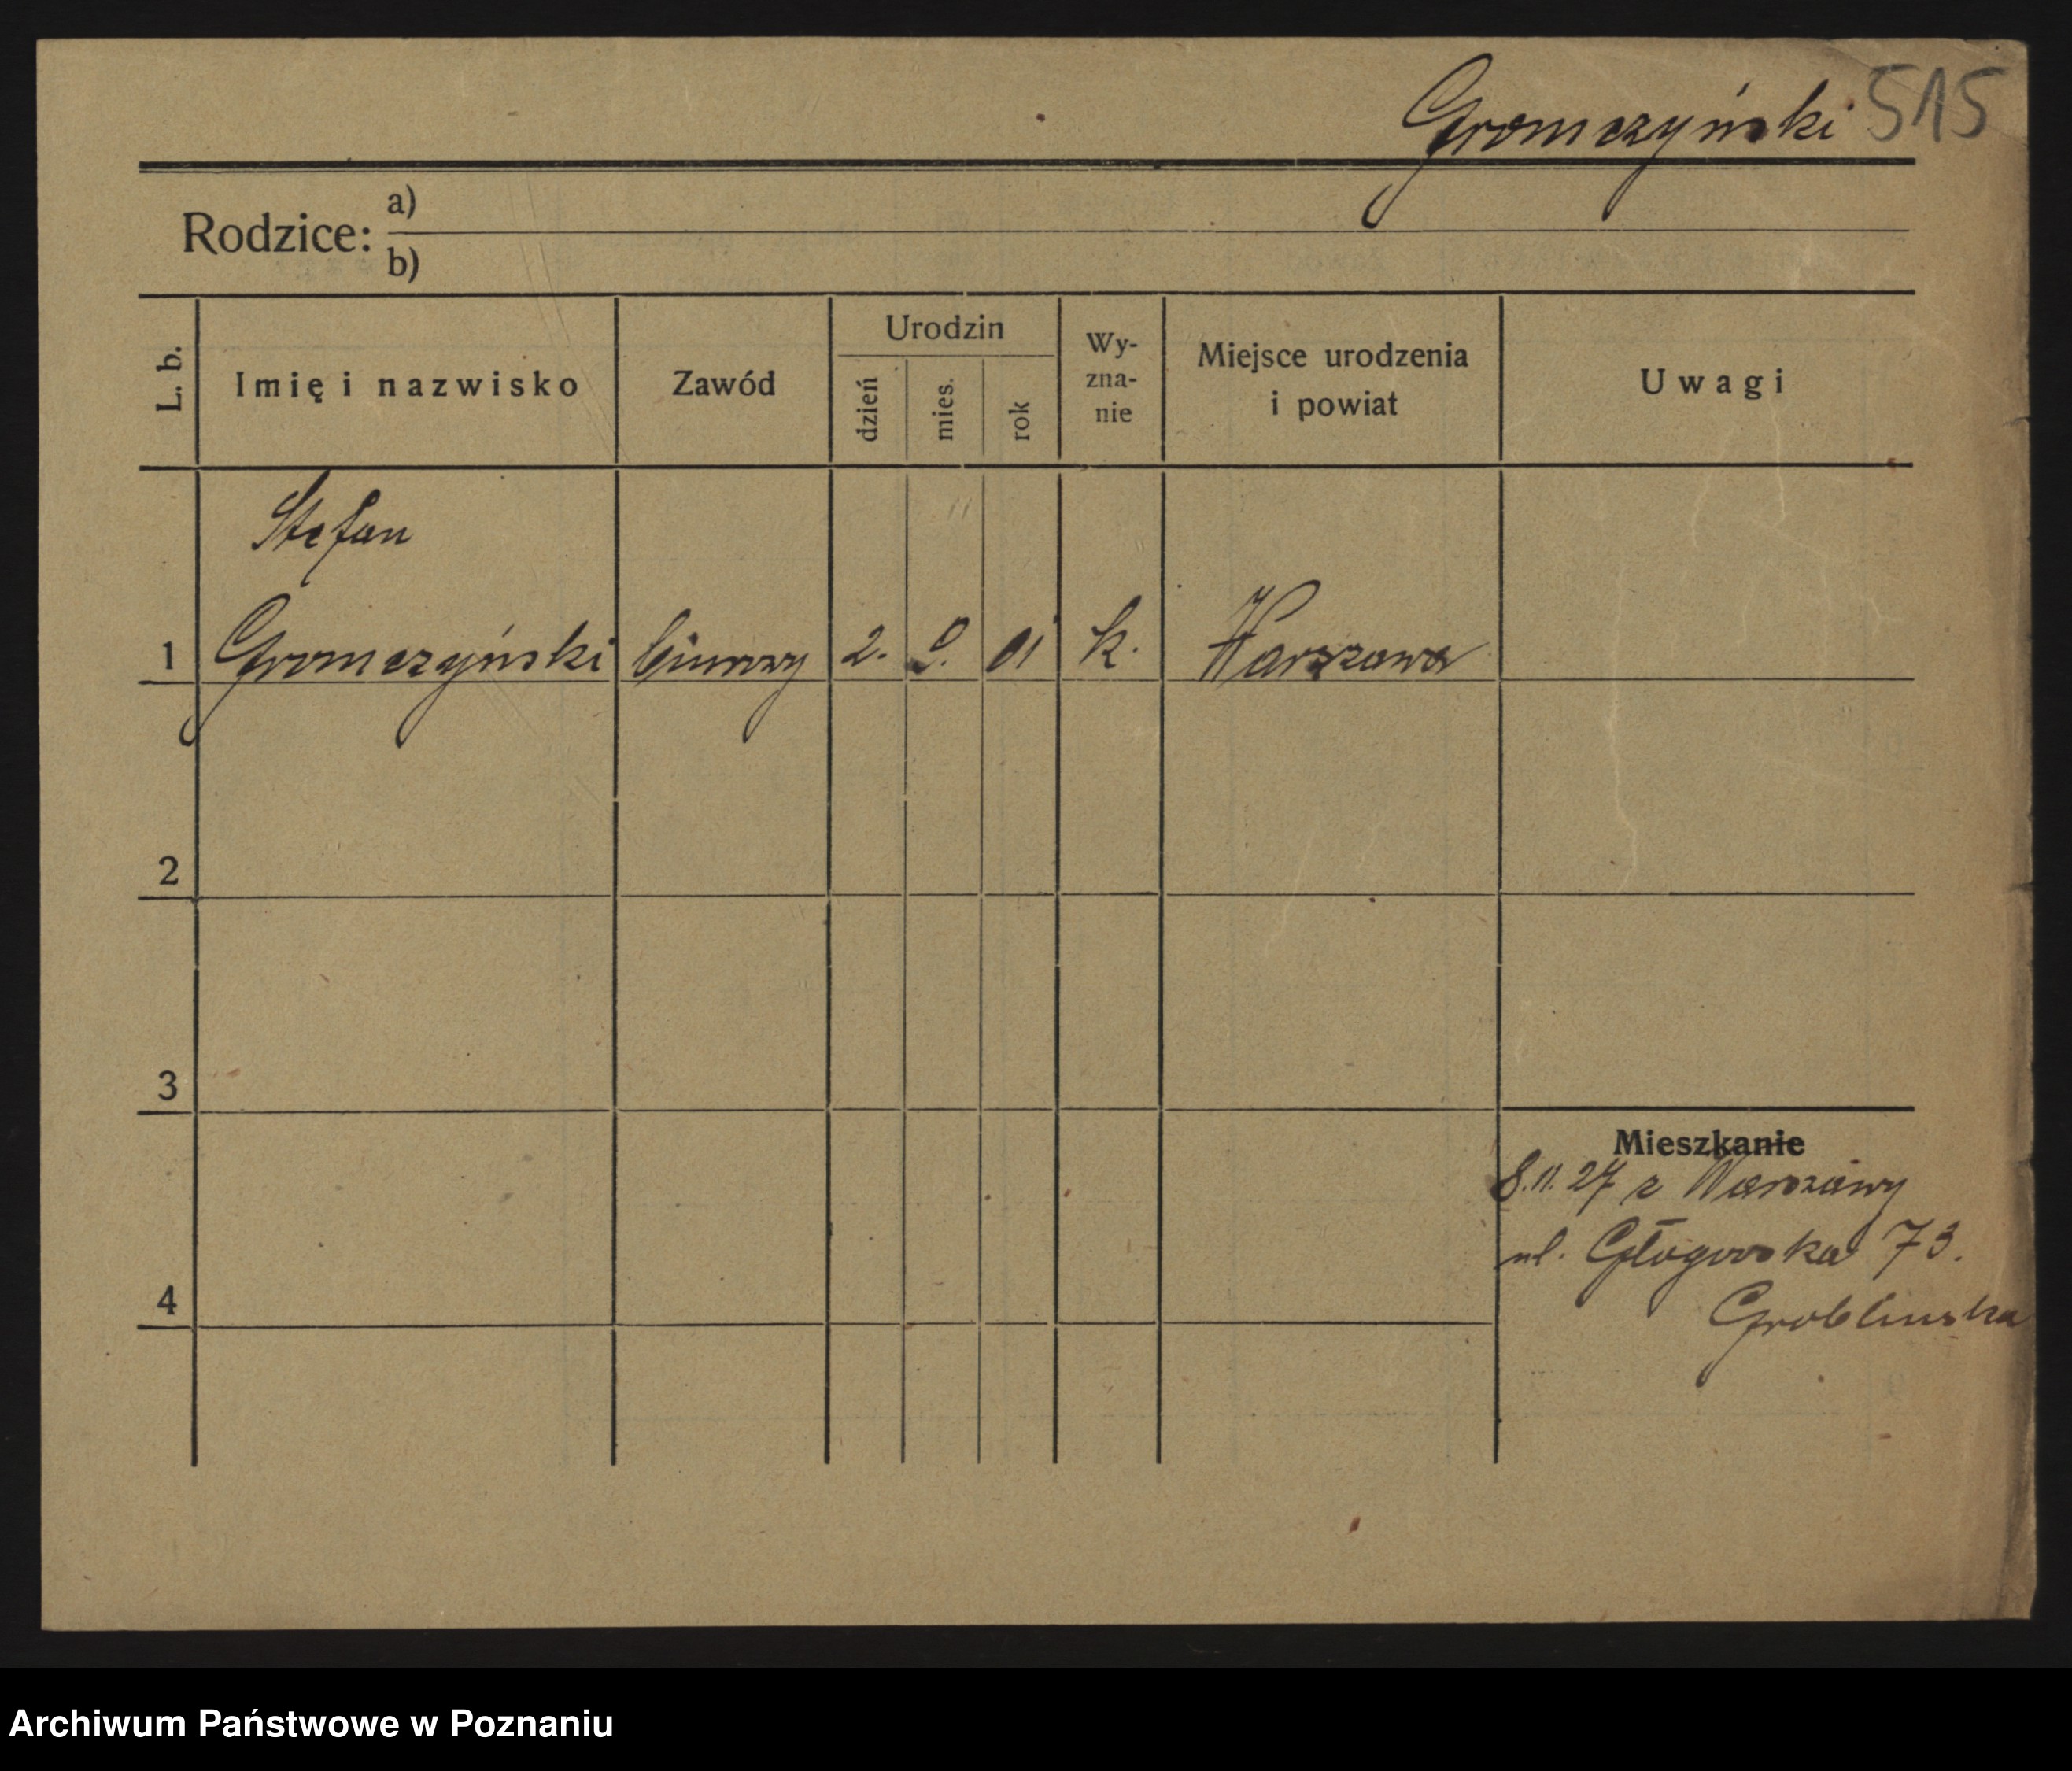 Gromczyński 515
Rodzice: a)
b)
L. b.
Imię i nazwisko
Zawód
Urodzin
dzień
mies.
rok
Wy-
zna-
nie
Miejsce urodzenia
i powiat
Uwagi
Stefan
1 Gromczyński biurowy 2. 9. 01 k. Warszawa
2
3
Mieszkanie
8.11.27 z Warszawy
ul. Głogowska 73.
4
Archiwum Państwowe w Poznaniu